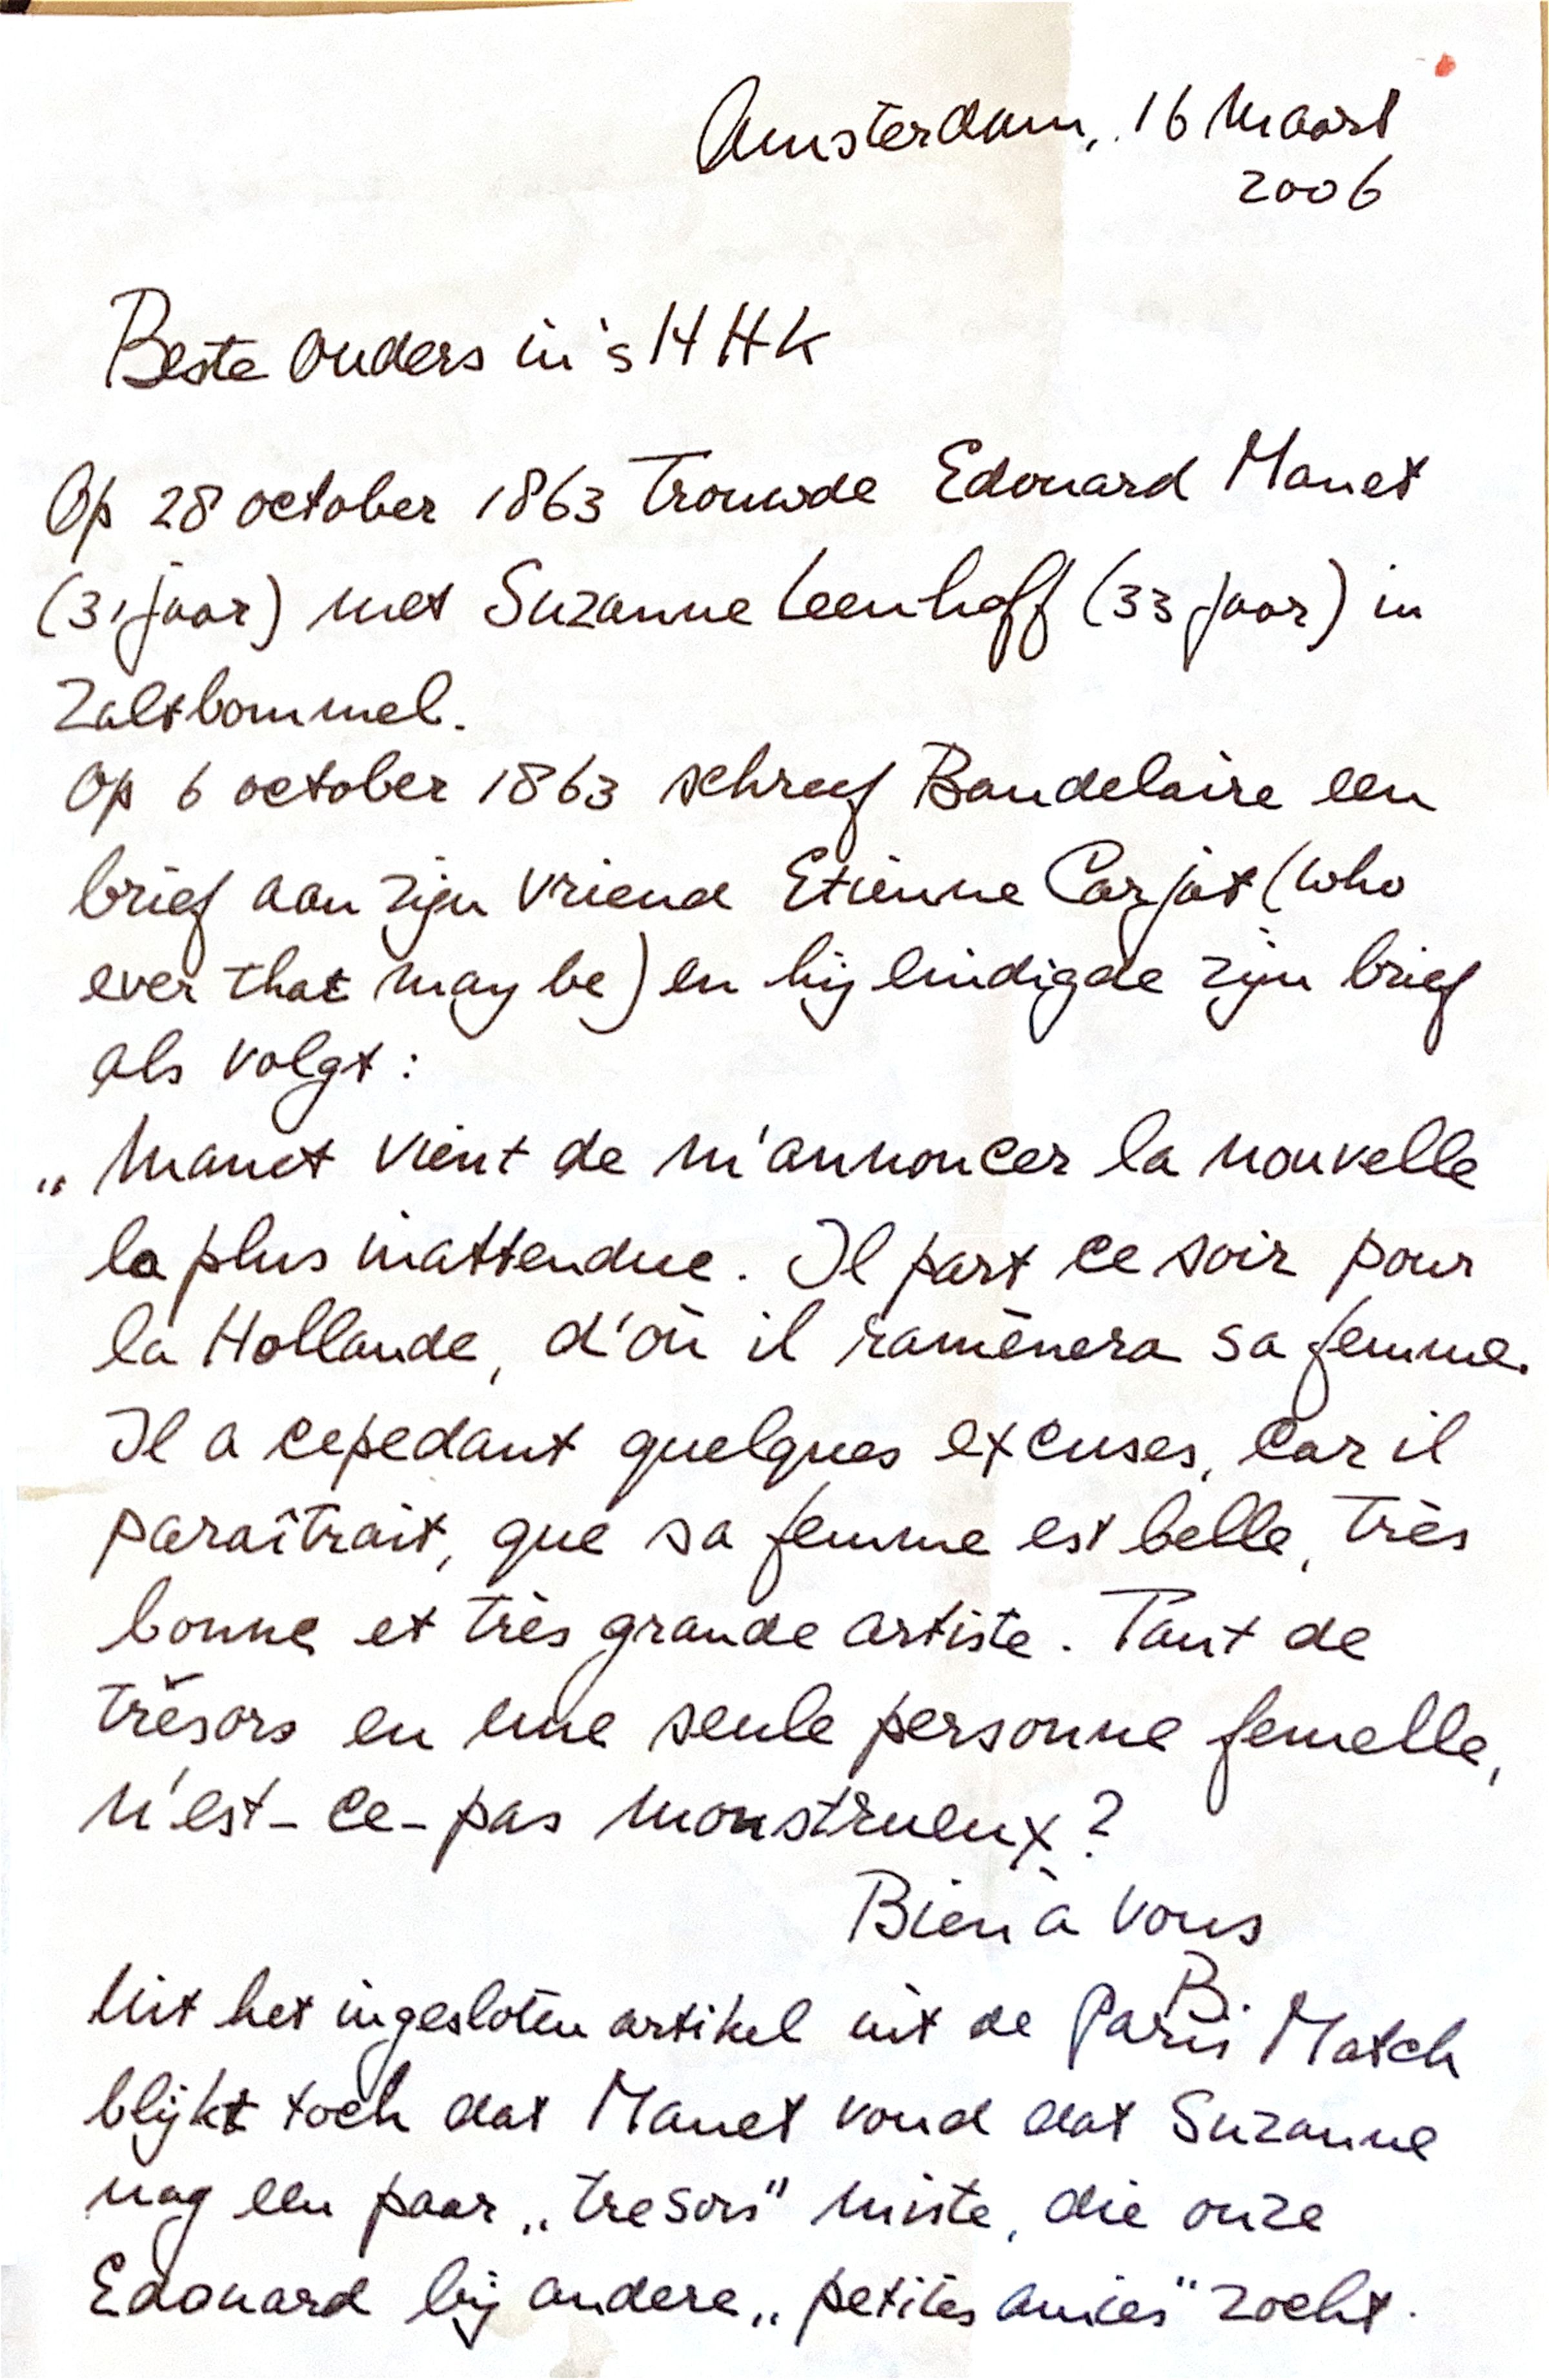 Amsterdam, 16 Maart
2006
Beste Ouders in 's HHK
Op 28 october 1863 trouwde Edouard Manet
(31 jaar) met Suzanne Leenhoff (33 jaar) in
Zaltbommel.
Op 6 october 1863 schreef Baudelaire een
brief aan zijn vriend Etienne Carjat (who
ever that may be) en hij eindigde zijn brief
als volgt:
„Manet vient de m'annoncer la nouvelle
la plus inattendue. Il part ce soir pour
la Hollande, d'où il ramènera sa femme.
Il a cepedant quelques excuses, car il
paraîtrait, que sa femme est belle, très
bonne et très grande artiste. Tant de
trésors en une seule personne femelle,
n'est-ce-pas monstrueux?
Bien à vous
B.
Uit het ingesloten artikel uit de Paris Match
blijkt toch dat Manet vond dat Suzanne
nog een paar „tresors" miste, die onze
Edouard bij andere „petites amies" zocht.